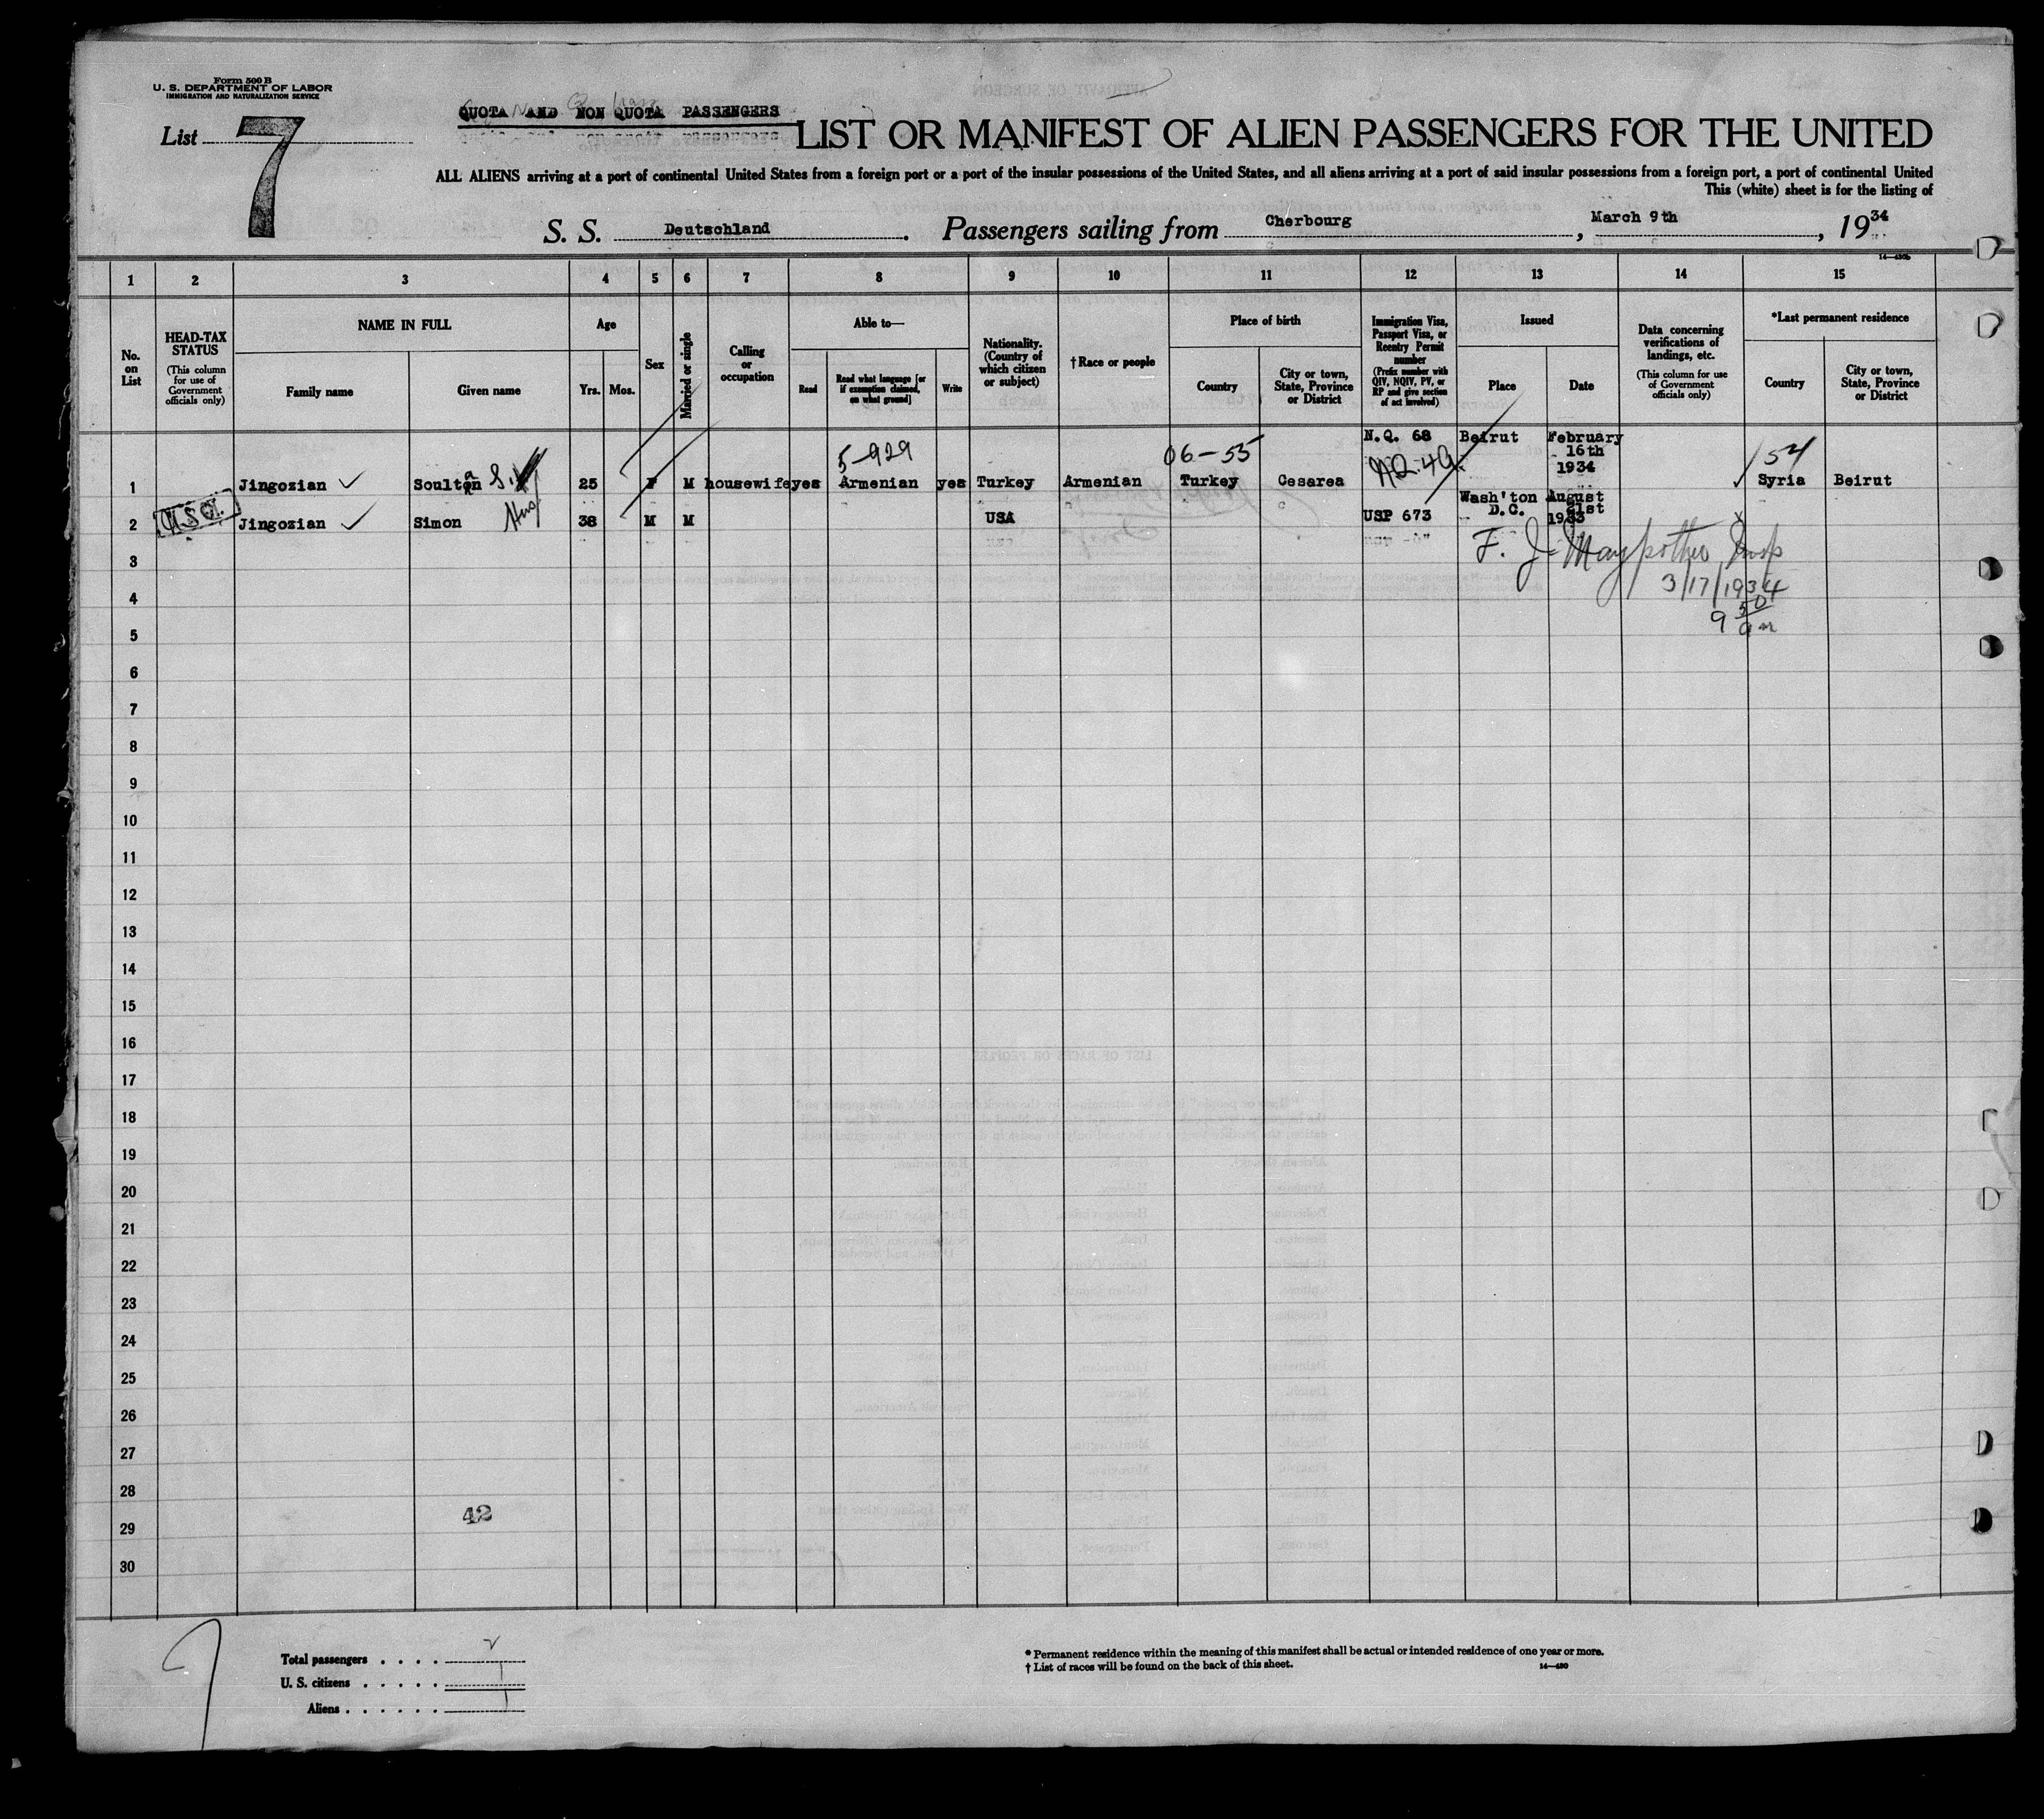 Form 500 B
U. S. DEPARTMENT OF LABOR
IMMIGRATION AND NATURALIZATION SERVICE
List 7
QUOTA AND NON QUOTA PASSENGERS
LIST OR MANIFEST OF ALIEN PASSENGERS FOR THE UNITED
ALL ALIENS arriving at a port of continental United States from a foreign port or a port of the insular possessions of the United States, and all aliens arriving at a port of said insular possessions from a foreign port, a port of continental United
This (white) sheet is for the listing of
S. S. Deutschland. Passengers sailing from Cherbourg, March 9th, 1934
14—430b
1 2 3 4 5 6 7 8 9 10 11 12 13 14 15
No. on List
HEAD-TAX STATUS
(This column for use of Government officials only)
NAME IN FULL
Family name
Given name
Age
Yrs. Mos.
Sex
Married or single
Calling or occupation
Able to—
Read
Read what language [or if exemption claimed, on what ground]
Write
Nationality. (Country of which citizen or subject)
† Race or people
Place of birth
Country
City or town, State, Province or District
Immigration Visa, Passport Visa, or Reentry Permit number
(Prefix number with QIV, NQIV, PV, or RP and give section of act involved)
Issued
Place
Date
Data concerning verifications of landings, etc.
(This column for use of Government officials only)
*Last permanent residence
Country
City or town, State, Province or District
5-929 06-55 N.Q. 68 Beirut February 16th 1934 54
NQ.4A.
1 Jingozian Soultan a S. 25 F M housewife yes Armenian yes Turkey Armenian Turkey Cesarea Syria Beirut
Wash'ton D.C. August 21st 1933
2 U.S.C. Jingozian Simon Hus 38 M M USA USP 673
F. J. Insp
3 3/17/1934
4 9 50 am
5
6
7
8
9
10
11
12
13
14
15
16
17
18
19
20
21
22
23
24
25
26
27
28
42
29
30
Total passengers . . . . 2
U. S. citizens . . . . . 1
Aliens . . . . . . 1
* Permanent residence within the meaning of this manifest shall be actual or intended residence of one year or more.
† List of races will be found on the back of this sheet.
14—430